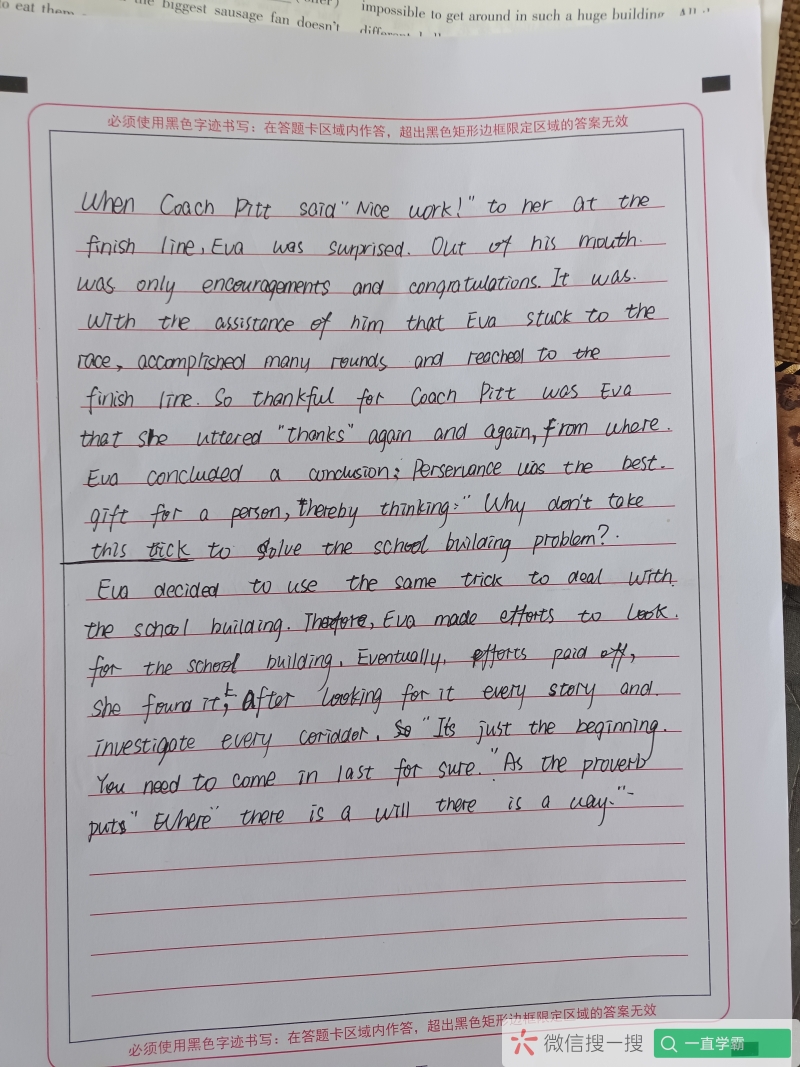 to eat them
the biggest sausage fan doesn't
impossible to get around in such a huge building.
必须使用黑色字迹书写：在答题卡区域内作答，超出黑色矩形边框限定区域的答案无效
When Coach Pitt said "Nice work!" to her at the
finish line, Eva was surprised. Out of his mouth
was only encouragements and congratulations. It was
with the assistance of him that Eva stuck to the
race, accomplished many rounds and reached to the
finish line. So thankful for Coach Pitt was Eva
that she uttered "thanks" again and again, from where
Eva concluded a conclusion; Perservance was the best
gift for a person, thereby thinking: "Why don't take
this trick to solve the school building problem?
Eva decided to use the same trick to deal with
the school building. Therefore, Eva made efforts to look
for the school building. Eventually, efforts paid off,
she found it, After looking for it every story and
investigate every coriddor. So "Its just the beginning.
You need to come in last for sure." As the proverb
puts "Where there is a will there is a way."
必须使用黑色字迹书写：在答题卡区域内作答，超出黑色矩形边框限定区域的答案无效
微信搜一搜
一直学霸